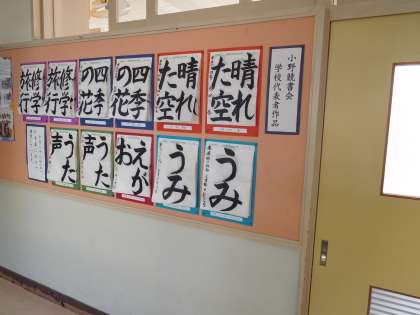 小野競書会
学校代表者作品
晴れ
た空
晴れ
た空
四季
の花
四季
の花
修学
旅行
修学
旅行
うみ
うみ
えが
お
うた
声
うた
声